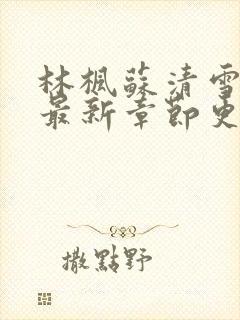 林楓蘇清雪
最新章節更
撒點野